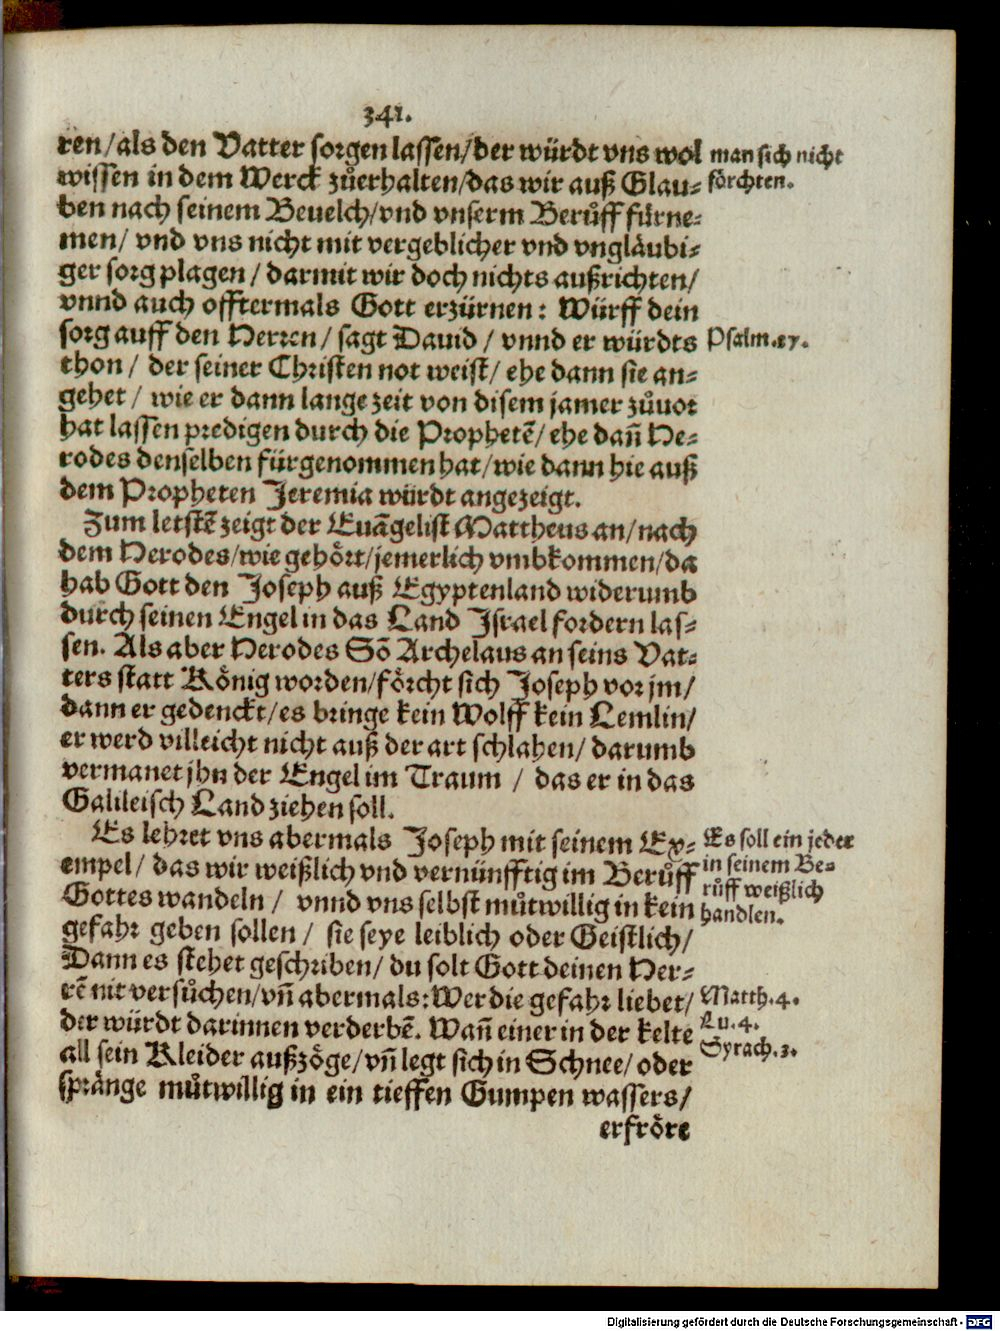 341.
ren/als den Vatter sorgen lassen/der würdt vns wol
wissen in dem Werck zůerhalten/das wir auß Glau-
ben nach seinem Beuelch/vnd vnserm Berůff fürne-
men/ vnd vns nicht mit vergeblicher vnd vngläubi-
ger sorg plagen / darmit wir doch nichts außrichten/
vnnd auch offtermals Gott erzürnen: Würff dein
sorg auff den Herren/ sagt Dauid / vnnd er würdts
thon / der seiner Christen not weist/ ehe dann sie an-
gehet / wie er dann lange zeit von disem jamer zůuor
hat lassen predigen durch die Prophetē/ ehe dañ He-
rodes denselben fürgenommen hat/wie dann hie auß
dem Propheten Jeremia würdt angezeigt.
Zum letstē zeigt der Euāgelist Mattheus an/nach
dem Herodes/wie gehört/jemerlich vmbkommen/da
hab Gott den Joseph auß Egyptenland widerumb
durch seinen Engel in das Land Israel fordern las-
sen. Als aber Herodes Sō Archelaus an seins Vat-
ters statt König worden/förcht sich Joseph vor jm/
dann er gedenckt/es bringe kein Wolff kein Lemlin/
er werd villeicht nicht auß der art schlahen/ darumb
vermanet jhn der Engel im Traum / das er in das
Galileisch Land ziehen soll.
Es lehret vns abermals Joseph mit seinem Ex-
empel/ das wir weißlich vnd vernünfftig im Berůff
Gottes wandeln / vnnd vns selbst můtwillig in kein
gefahr geben sollen / sie seye leiblich oder Geistlich/
Dann es stehet geschriben/ du solt Gott deinen Her-
rē nit versůchen/vñ abermals: Wer die gefahr liebet/
der würdt darinnen verderbē. Wañ einer in der kelte
all sein Kleider außzöge/vñ legt sich in Schnee/ oder
spränge můtwillig in ein tieffen Gumpen wassers/
erfröre
man sich nicht
förchten.
Psalm.57.
Es soll ein jeder
in seinem Be-
růff weißlich
handlen.
Matth.4.
Lu.4.
Syrach.3.
Digitalisierung gefördert durch die Deutsche Forschungsgemeinschaft - DFG